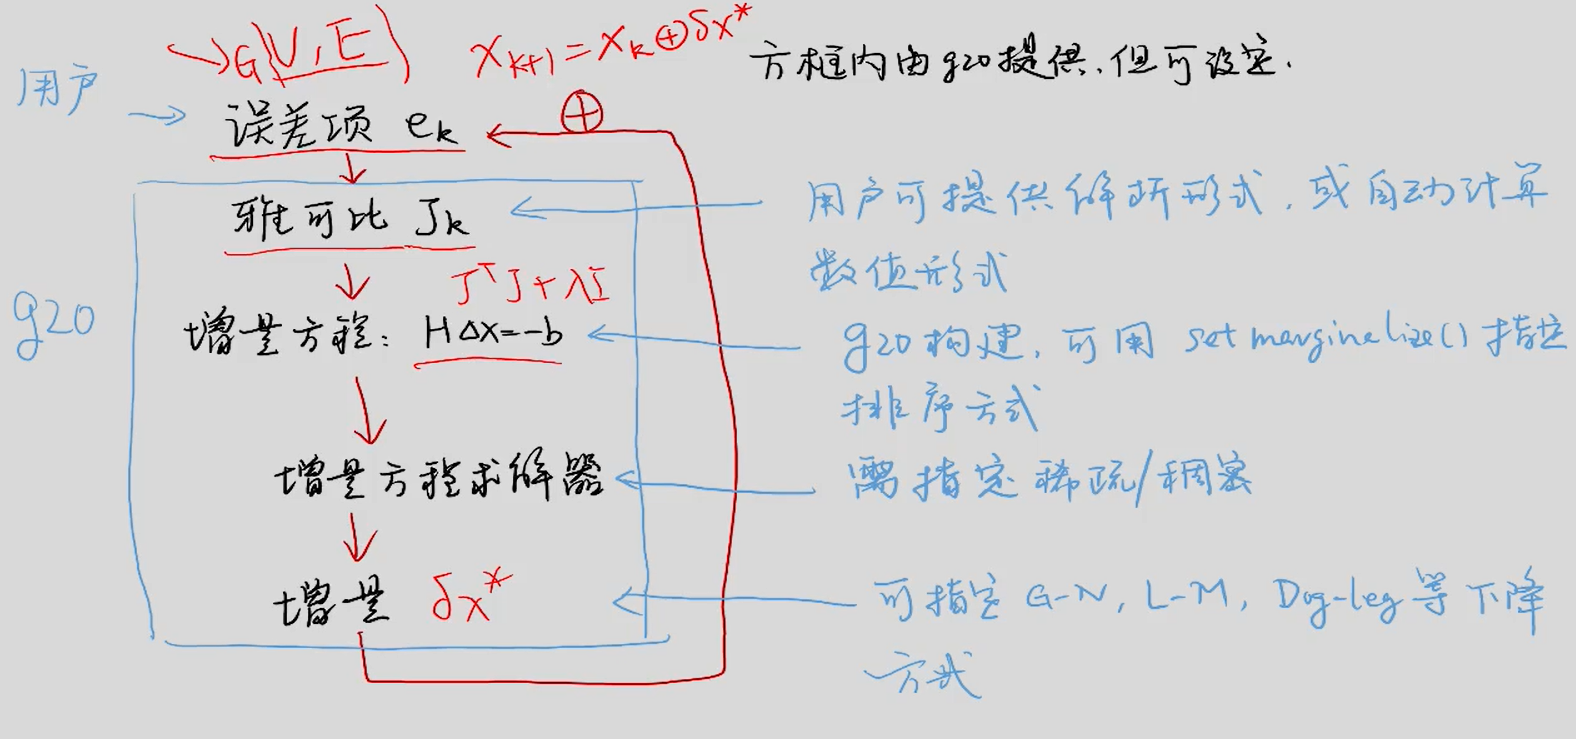 G(V,E)
x_{k+1}=x_k⊕δx*
方框内由g2o提供,但可设定.
用户
误差项 e_k
⊕
雅可比 J_k
用户可提供解析形式,或自动计算
数值形式
JᵀJ+λI
g2o
增量方程: HΔx=-b
g2o构建,可用 setmarginalize()指定
排序方式
增量方程求解器
需指定稀疏/稠密
增量 δx*
可指定 G-N, L-M, Dog-leg等下降
方式